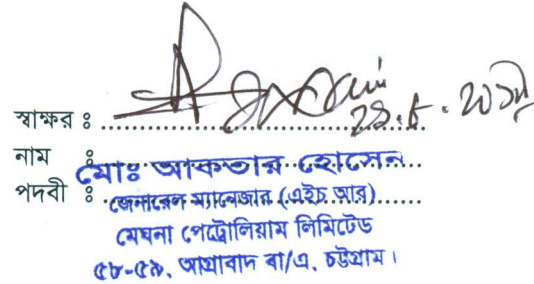 স্বাক্ষর ঃ
নাম ঃ মোঃ আকতার হোসেন
পদবী ঃ জেনারেল ম্যানেজার (এইচ আর)
মেঘনা পেট্রোলিয়াম লিমিটেড
৫৮-৫৯, আগ্রাবাদ বা/এ, চট্টগ্রাম।